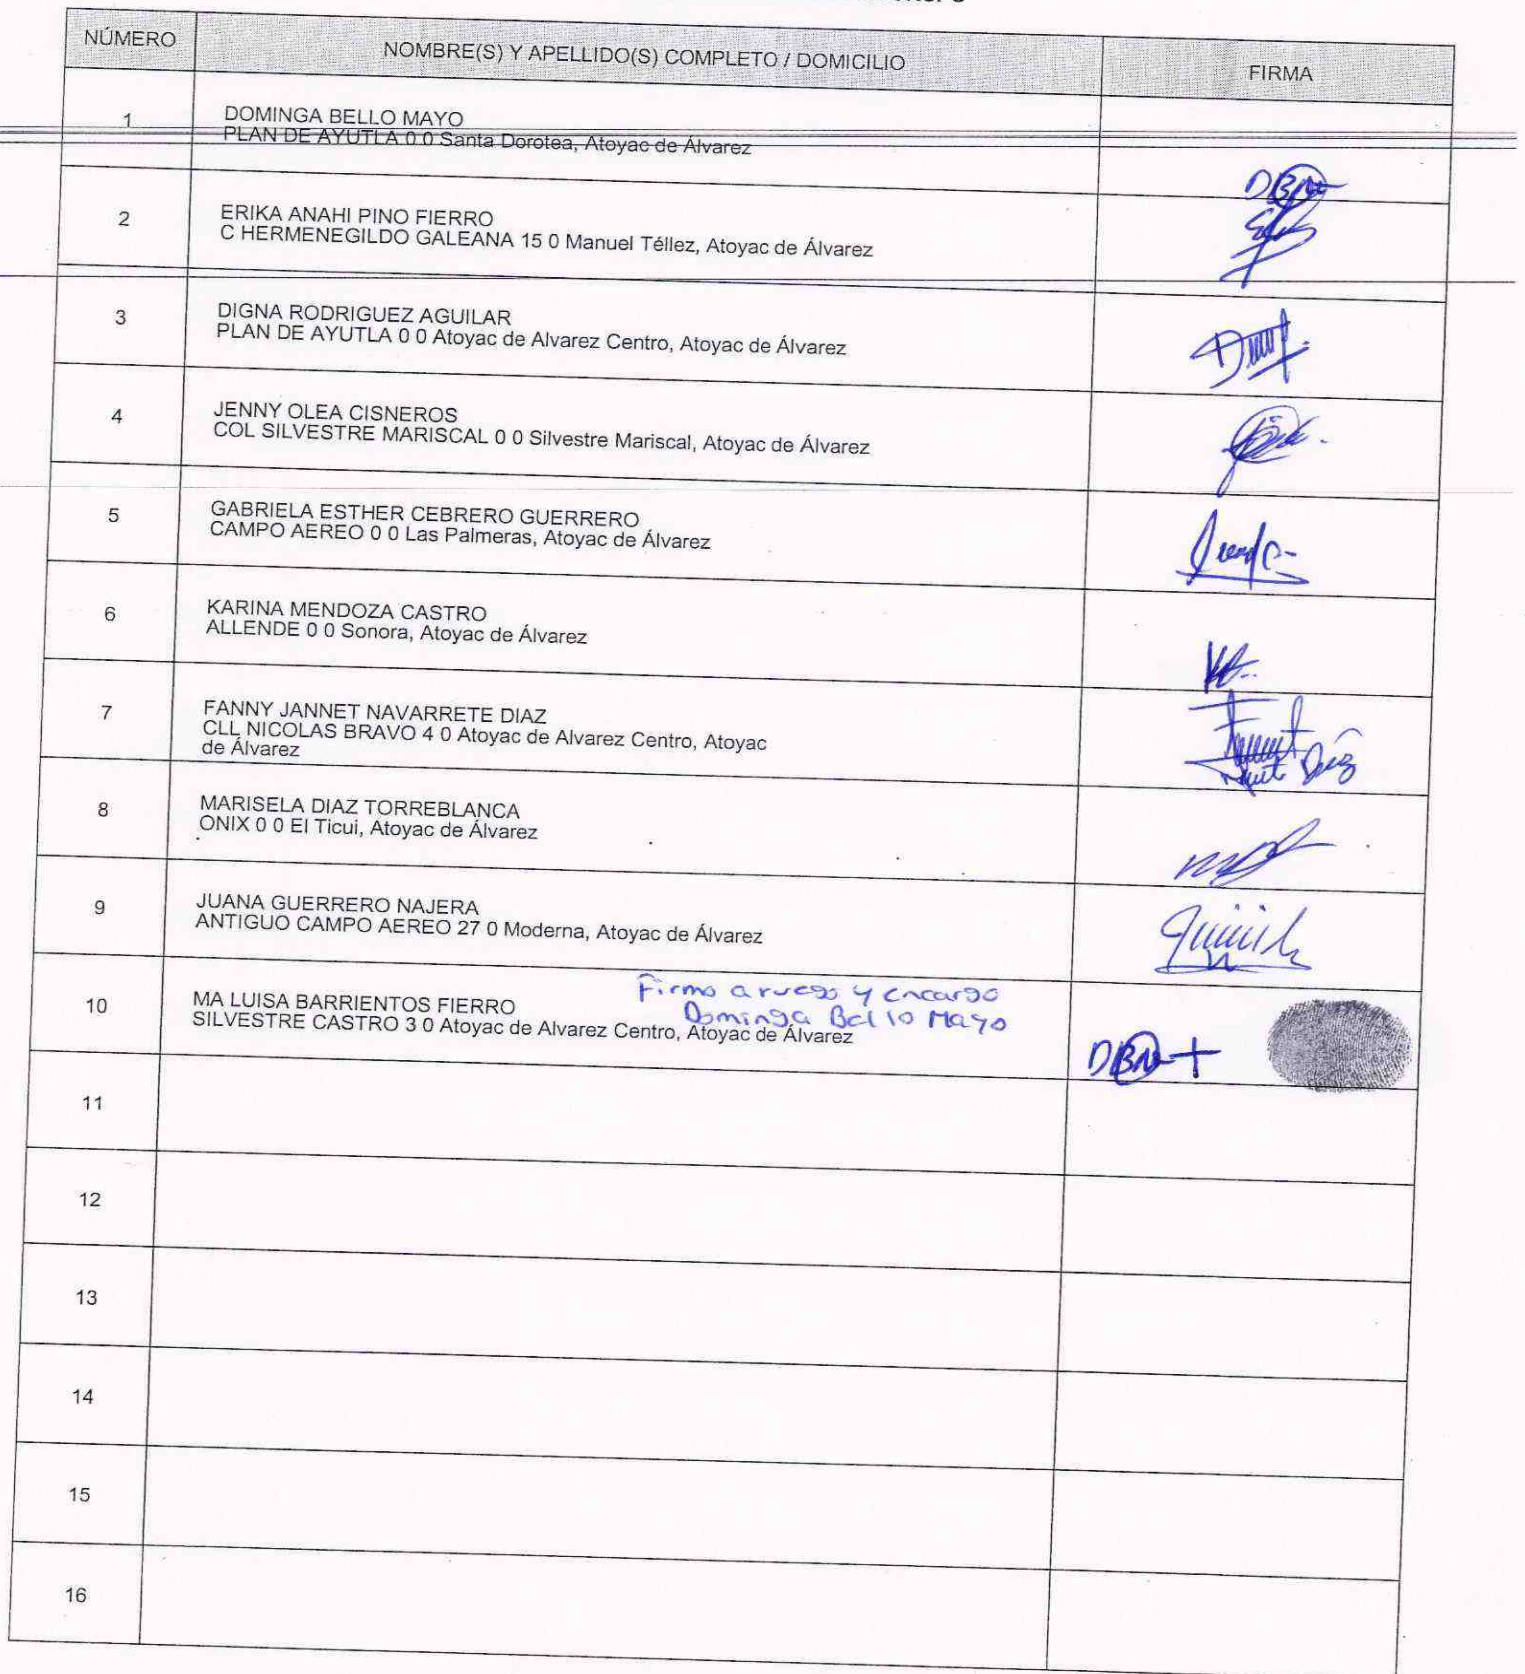 NÚMERO
NOMBRE(S) Y APELLIDO(S) COMPLETO / DOMICILIO
FIRMA
1
DOMINGA BELLO MAYO
PLAN DE AYUTLA 0 0 Santa Dorotea, Atoyac de Álvarez
DBM
2
ERIKA ANAHI PINO FIERRO
C HERMENEGILDO GALEANA 15 0 Manuel Téllez, Atoyac de Álvarez
3
DIGNA RODRIGUEZ AGUILAR
PLAN DE AYUTLA 0 0 Atoyac de Alvarez Centro, Atoyac de Álvarez
4
JENNY OLEA CISNEROS
COL SILVESTRE MARISCAL 0 0 Silvestre Mariscal, Atoyac de Álvarez
5
GABRIELA ESTHER CEBRERO GUERRERO
CAMPO AEREO 0 0 Las Palmeras, Atoyac de Álvarez
6
KARINA MENDOZA CASTRO
ALLENDE 0 0 Sonora, Atoyac de Álvarez
7
FANNY JANNET NAVARRETE DIAZ
CLL NICOLAS BRAVO 4 0 Atoyac de Alvarez Centro, Atoyac
de Álvarez
Díaz
8
MARISELA DIAZ TORREBLANCA
ONIX 0 0 El Ticui, Atoyac de Álvarez
9
JUANA GUERRERO NAJERA
ANTIGUO CAMPO AEREO 27 0 Moderna, Atoyac de Álvarez
10
MA LUISA BARRIENTOS FIERRO
Firmo a ruego y encargo
Dominga Bello Mayo
SILVESTRE CASTRO 3 0 Atoyac de Alvarez Centro, Atoyac de Álvarez
DBM
11
12
13
14
15
16